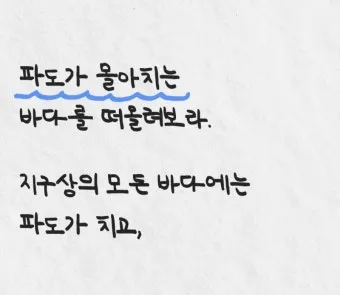 파도가 몰아치는
바다를 떠올려보라.
지구상의 모든 바다에는
파도가 치고,